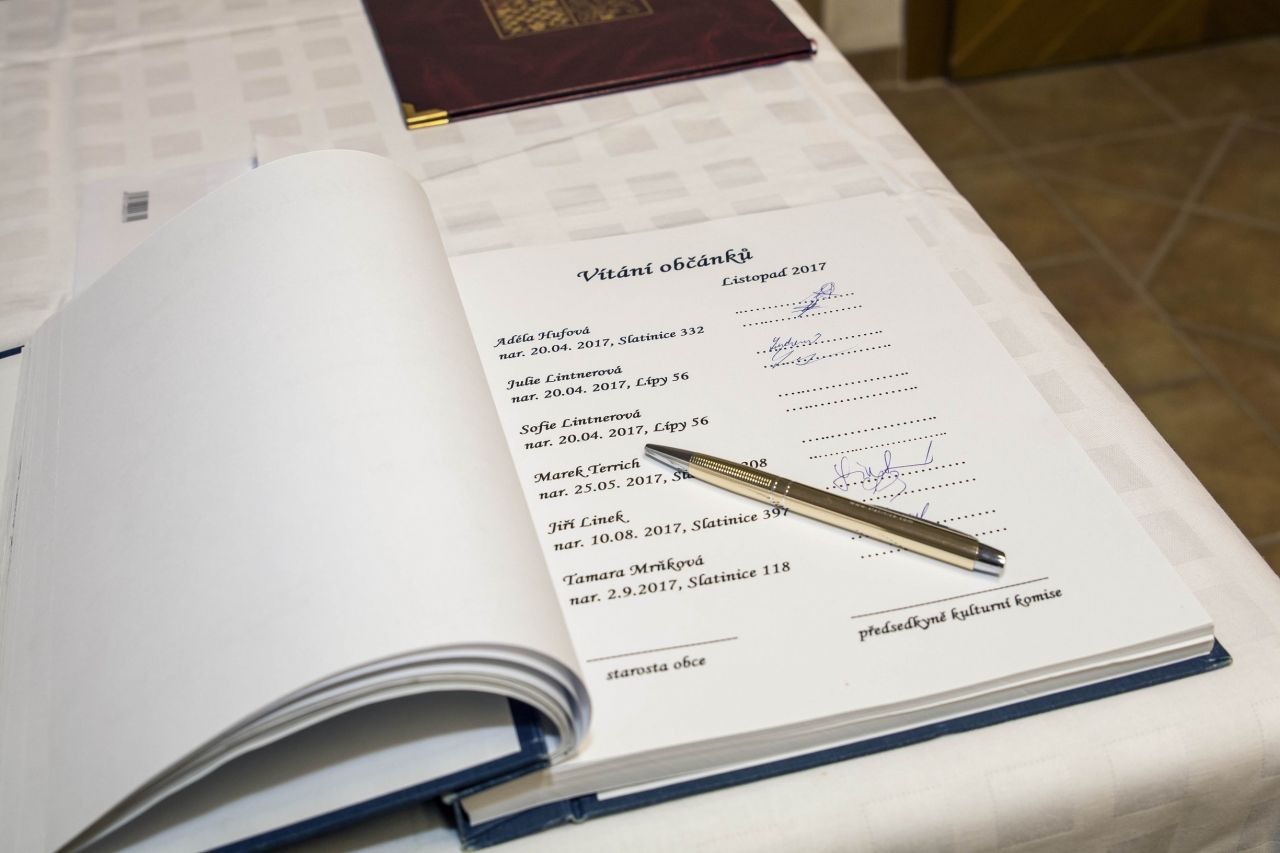 Vítání občánků
Listopad 2017
Adéla Hufová
nar. 20.04. 2017, Slatinice 332
Julie Lintnerová
nar. 20.04. 2017, Lípy 56
Sofie Lintnerová
nar. 20.04. 2017, Lípy 56
Marek Terrich
nar. 25.05. 2017, 208
Jiří Linek
nar. 10.08. 2017, Slatinice 397
Tamara Mrňková
nar. 2.9.2017, Slatinice 118
starosta obce
předsedkyně kulturní komise